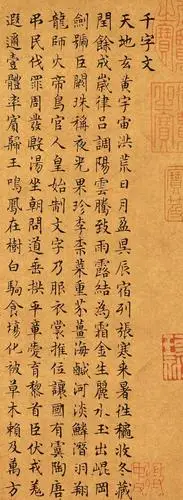 千字文
天地玄黃宇宙洪荒日月盈昃辰宿列張寒來暑往穐收冬藏
閏餘成歲律呂調陽雲騰致雨露結為霜金生麗水玉出崐岡
劍號巨闕珠稱夜光果珍李柰菜重芥薑海鹹河淡鱗潛羽翔
龍師火帝鳥官人皇始制文字乃服衣裳推位讓國有虞陶唐
弔民伐罪周發殷湯坐朝問道垂拱平章愛育黎首臣伏戎羌
遐邇壹體率賓歸王鳴鳳在樹白駒食場化被草木賴及萬方